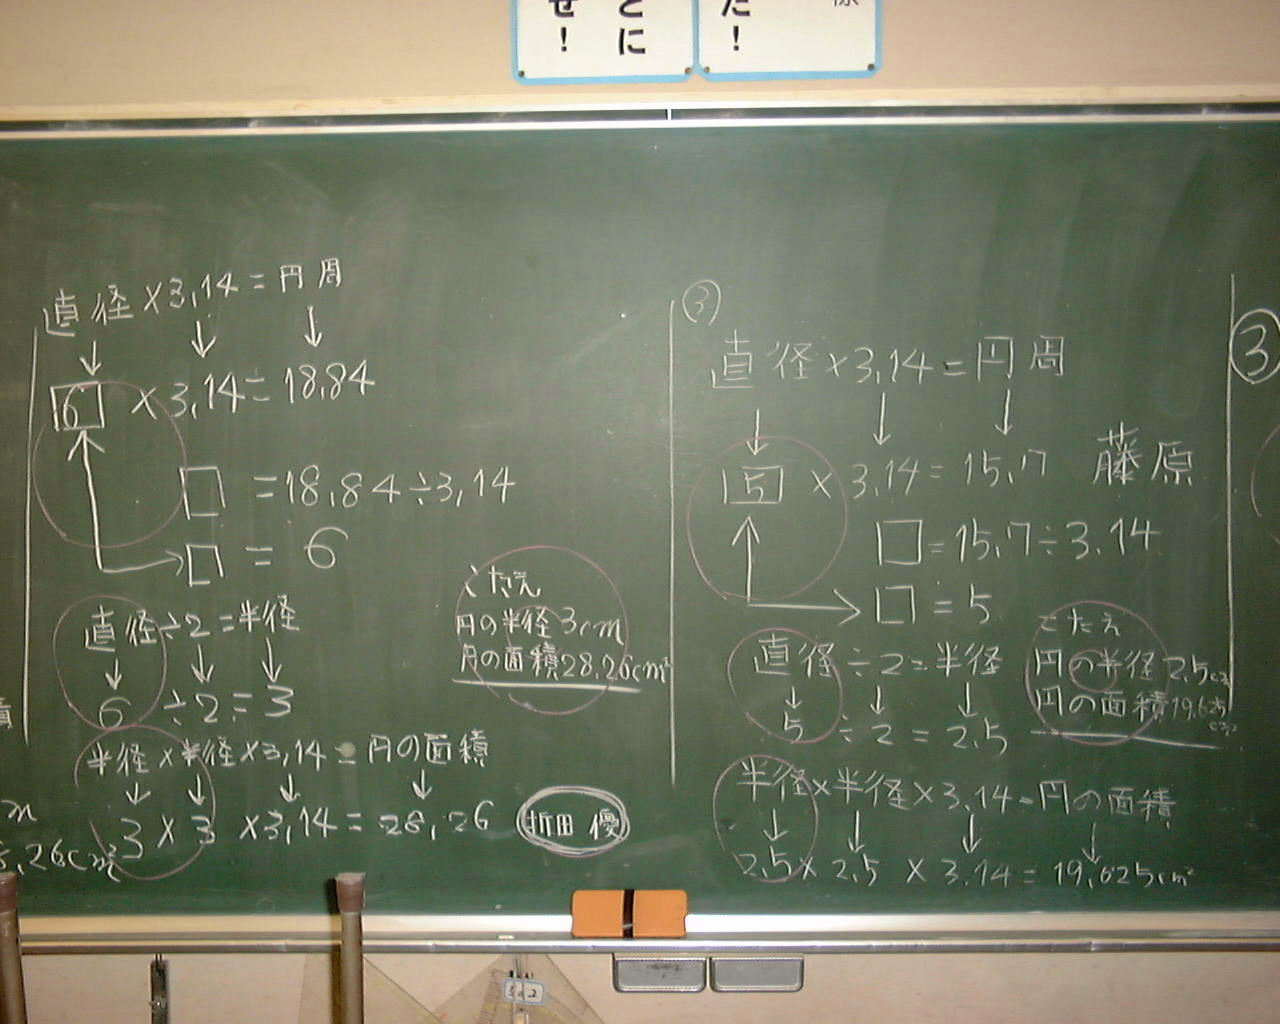 ぜ！
とに
た！
様
直径×3.14=円周
6 ×3.14=18.84
□ =18.84÷3.14
□ = 6
直径÷2=半径
6 ÷2=3
半径×半径×3.14=円の面積
3×3 ×3.14=28.26
こたえ
円の半径3cm
円の面積28.26cm²
折田 優
積
m
8.26cm²
③
直径×3.14=円周
5 ×3.14=15.7
藤原
□=15.7÷3.14
□=5
直径÷2=半径
5 ÷2=2.5
半径×半径×3.14=円の面積
2.5×2.5 ×3.14=19.625cm²
こたえ
円の半径2.5cm
円の面積19.625
cm²
③